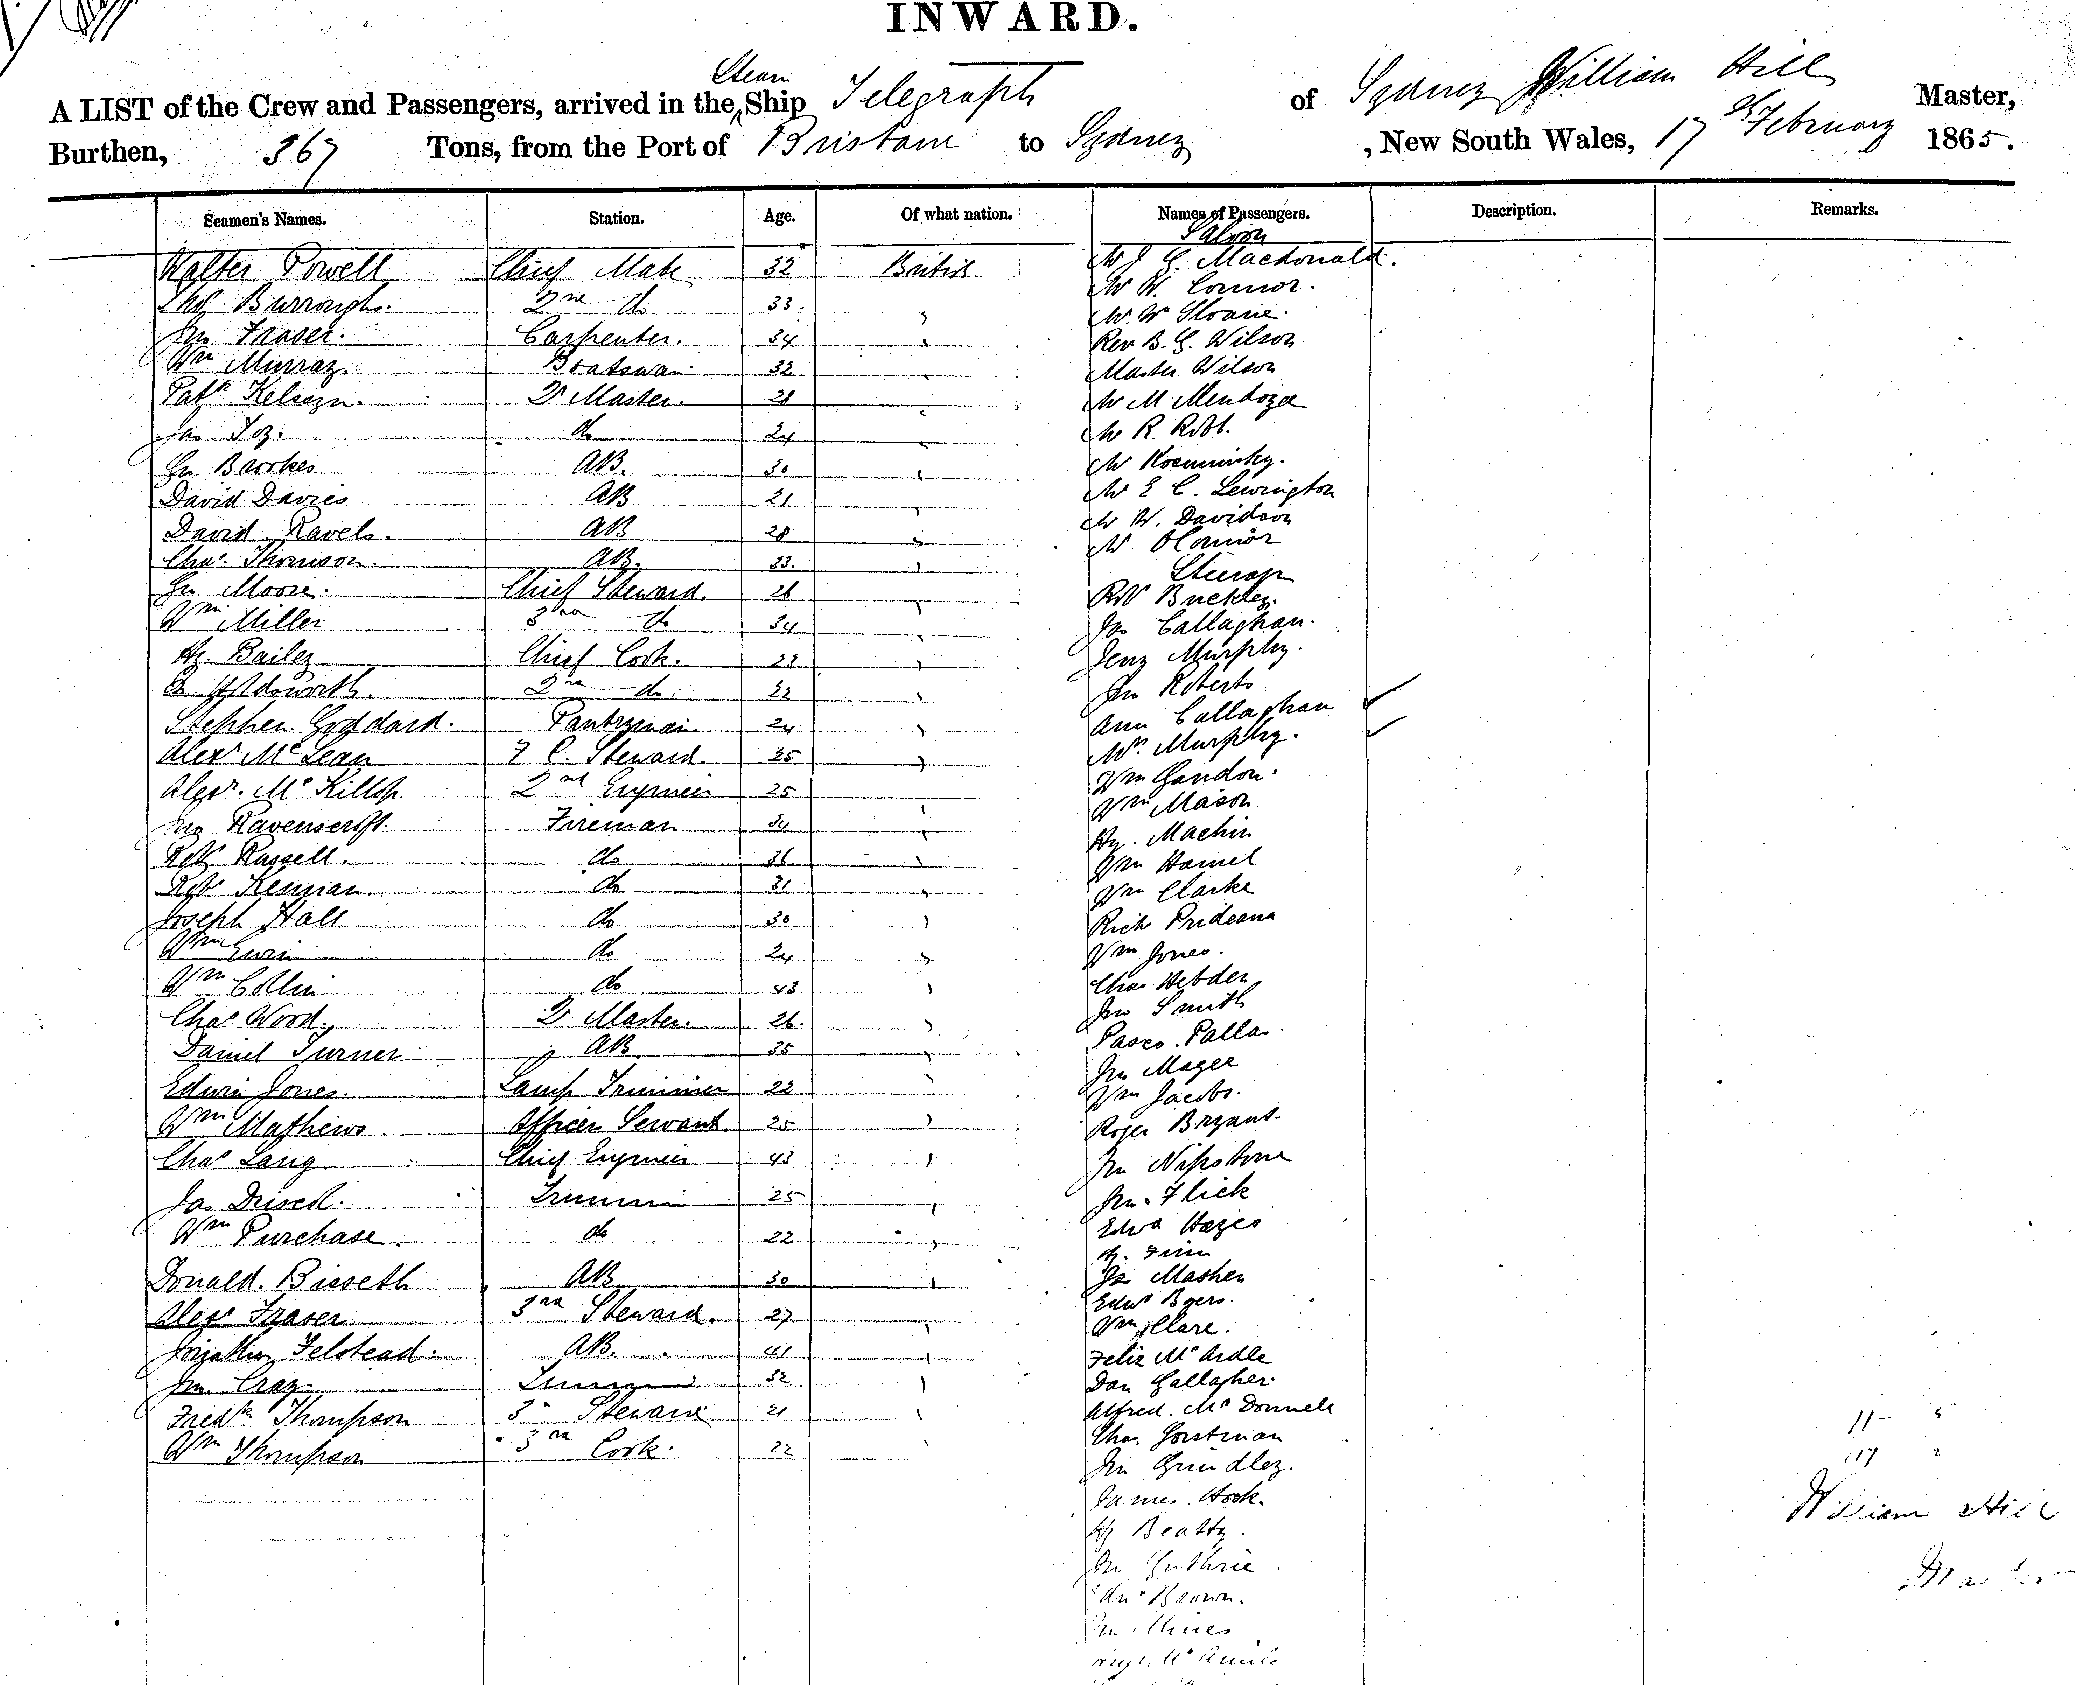 INWARD.
A LIST of the Crew and Passengers, arrived in the Steam Ship Telegraph of Sydney William Hill Master,
Burthen, 367 Tons, from the Port of Brisbane to Sydney, New South Wales, 17th February 1865.
Seamen's Names. Station. Age. Of what nation. Names of Passengers. Description. Remarks.
Saloon
Walter Powell Chief Mate 32 British Mr J G. Macdonald.
Thos Burroughs. 2nd do 33 " Mr W. Connor.
Jno Fraser. Carpenter. 34 " Mr Wm Sloane.
Wm Murray Boatswain 32 " Rev B. G. Wilson
Patk 28 " Master Wilson
Qr Master. Mr M Mendoza
Jas Foy. do 24 " Mr R. Robt.
Jn Brookes AB. 30 "
David Davies AB 21 " Mr E C. Lewington
David Ravels. AB 28 " Mr W. Davidson
Chas Thomson. AB. 23. " Mr OConnor
Steerage
Jn Moore. Chief Steward. 26 " Robt Buckley.
Wm Miller do 34 " Jas Callaghan.
Hy Bailey Chief Cook. " Jeny Murphy.
Holdsworth. 2nd do 32 " Jno Roberts
Stephen Goddard. Pantryman 24 " Ann Callaghan
Alexr McLean F C. Steward. 35 " Mrs Murphy.
Alexr. McKillop 2nd Engineer 25 " Wm Gandon.
Wm Mason
Jno Ravenscroft. Fireman 34 " Hy. Machin
Robt Russell. do 36 " Wm Hamel
Robt Kennan. do 31 " Wm Clarke
Joseph Hall do 30 " Rich
Wm Ewin do 24 " Wm Jones.
Wm Collin do 43 " Chas Hebden
Chas Wood. Qr Master. 26. " Jno Smith
Daniel Turner AB 35 " Pasco
Jno Magee
Edwin Jones. Lamp Trimmer 22 " Wm Jacobs.
Wm Mathews Officer Servant 25 " Roger Bryant.
Chas Lang Chief Engineer 43 " Jno
Jas Trimmer 25 " Jno Flick
Wm Purchase. do 22 " Edwd Hayes
Donald. Bisseth AB 30 " Jas Mashen
Edwd Byers.
Alexr Fraser 3rd Steward. 27 " Wm Clare.
Jonathan Felstead. AB. 41 " Felix McArdle
Jno Cray Trimmer 32 " Dan Gallagher.
Fredk Thompson 3rd Steward 21 " Alfred. McDonnell
Wm Thompson 3rd Cook. 22 Chas Gorstman
Jno Grindley.
James. Hook.
Hy Beatty.
Jno Guthrie
Brown.
Jno Hines
11 5
117 2
William Hill
Master